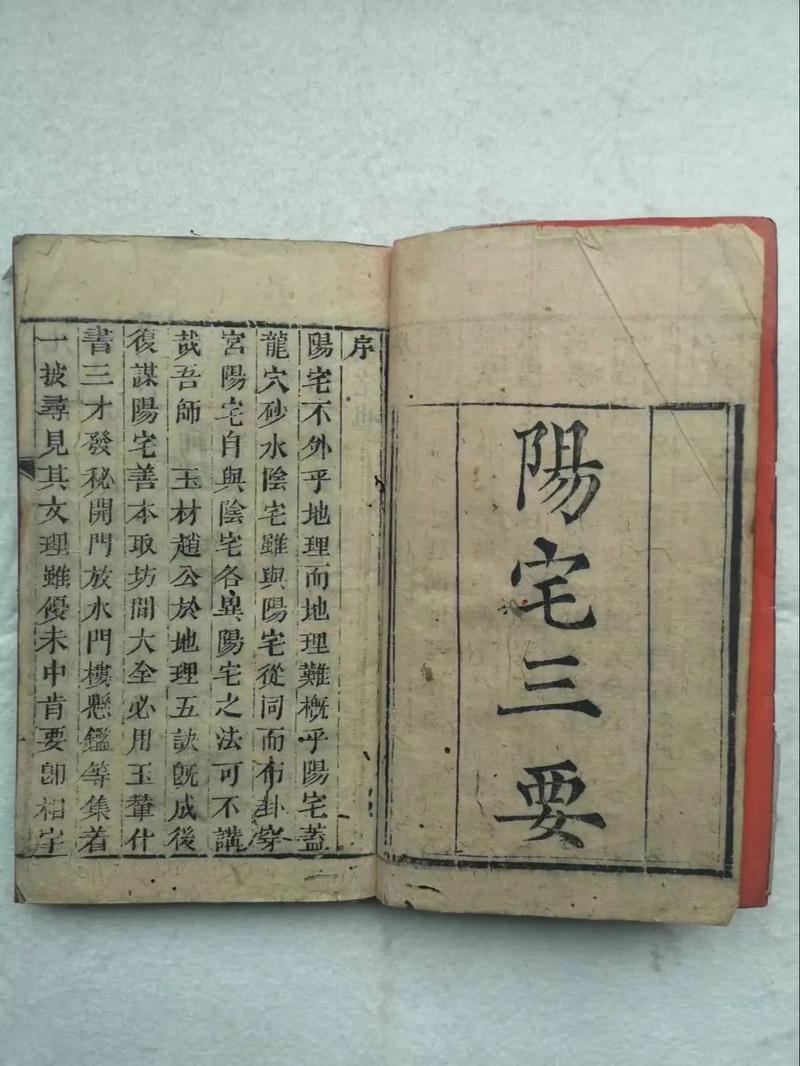 陽宅三要
序
陽宅不外乎地理而地理難概乎陽宅蓋
龍穴砂水陰宅雖與陽宅從同而布卦穿
宮陽宅自與陰宅各異陽宅之法可不講
哉吾師 玉材趙公於地理五訣既成後
復謀陽宅善本取坊間大全必用玉輦什
書三才發秘開門放水門樓懸鑑等集着
一披尋見其文理雖優未中肯要即相宅